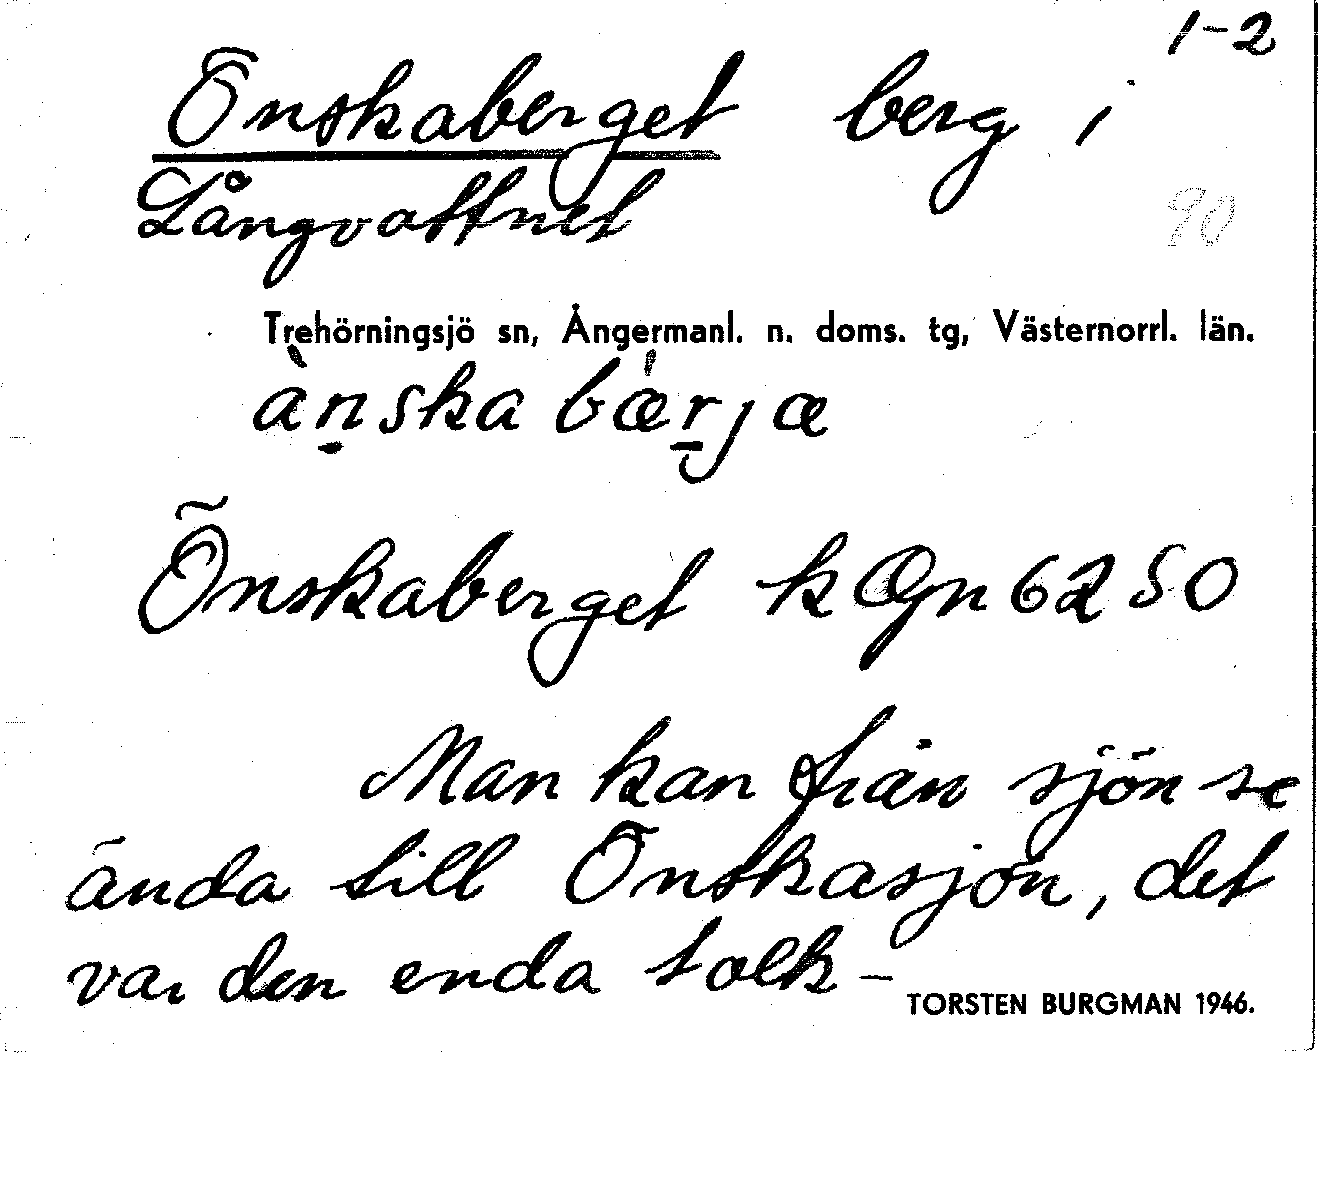 1-2
Önskaberget berg i
Långvattnet
90
Trehörningsjö sn, Ångermanl. n. doms. tg, Västernorrl. län.
ànska bærjæ
Önskaberget k Ögn 6250
Man kan från sjön se
ända till Önskasjön, det
var den enda tolk-
TORSTEN BURGMAN 1946.